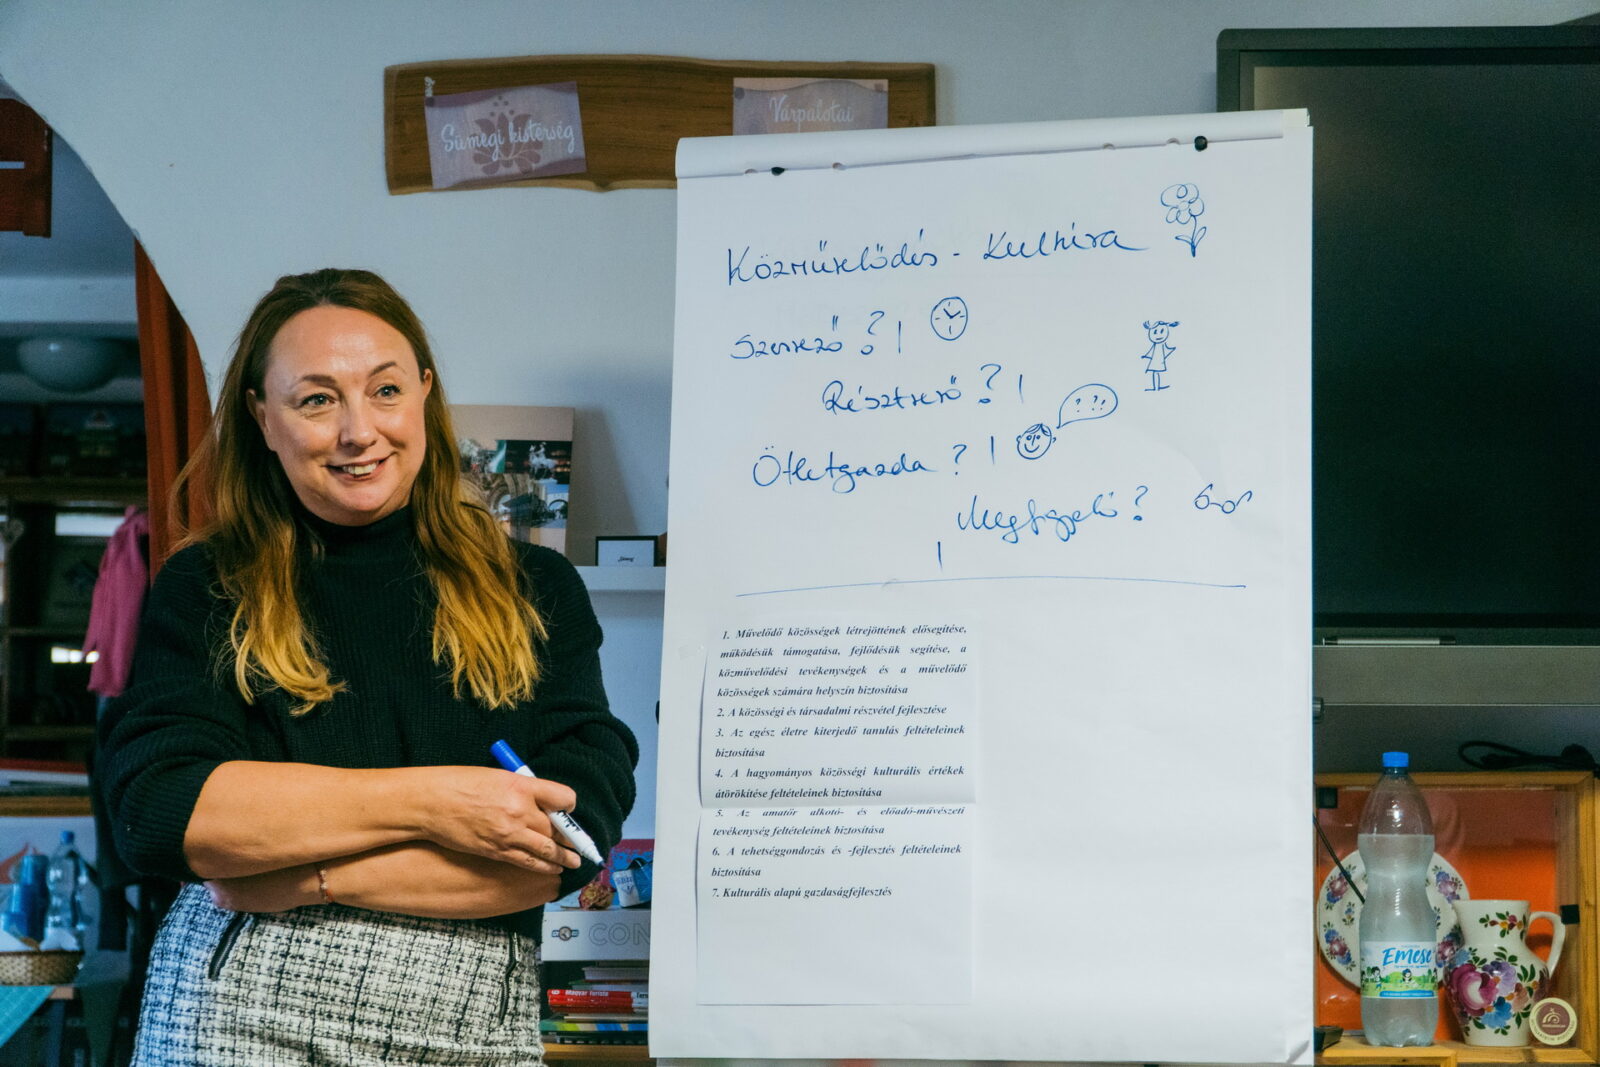 Sümegi kistérség
Várpalotai
Közművelődés - Kultúra
Szervező ? !
Résztvevő ? !
? ? ? !
Ötletgazda ? !
Megfigyelő ?
!
"Sümeg"
1. Művelődő közösségek létrejöttének elősegítése,
működésük támogatása, fejlődésük segítése, a
közművelődési tevékenységek és a művelődő
közösségek számára helyszín biztosítása
2. A közösségi és társadalmi részvétel fejlesztése
3. Az egész életre kiterjedő tanulás feltételeinek
biztosítása
4. A hagyományos közösségi kulturális értékek
átörökítése feltételeinek biztosítása
5. Az amatőr alkotó- és előadó-művészeti
tevékenység feltételeinek biztosítása
6. A tehetséggondozás és -fejlesztés feltételeinek
biztosítása
7. Kulturális alapú gazdaságfejlesztés
CON
Magyar Turista
Emese